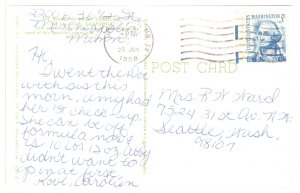 Minneapolis
PM
23 JUN
1968
WASHINGTON 5¢
POST CARD
Hi,
I went the Dr.
with sis this
morn. amy had
her 1st check-up.
She can be off
formula now
is 10 lbs 12 oz. abby
didn't want to
pin at first.
Love, Carolyn
Mrs R W Ward
7524 31st Av. N.E.
Seattle, Wash.
98107